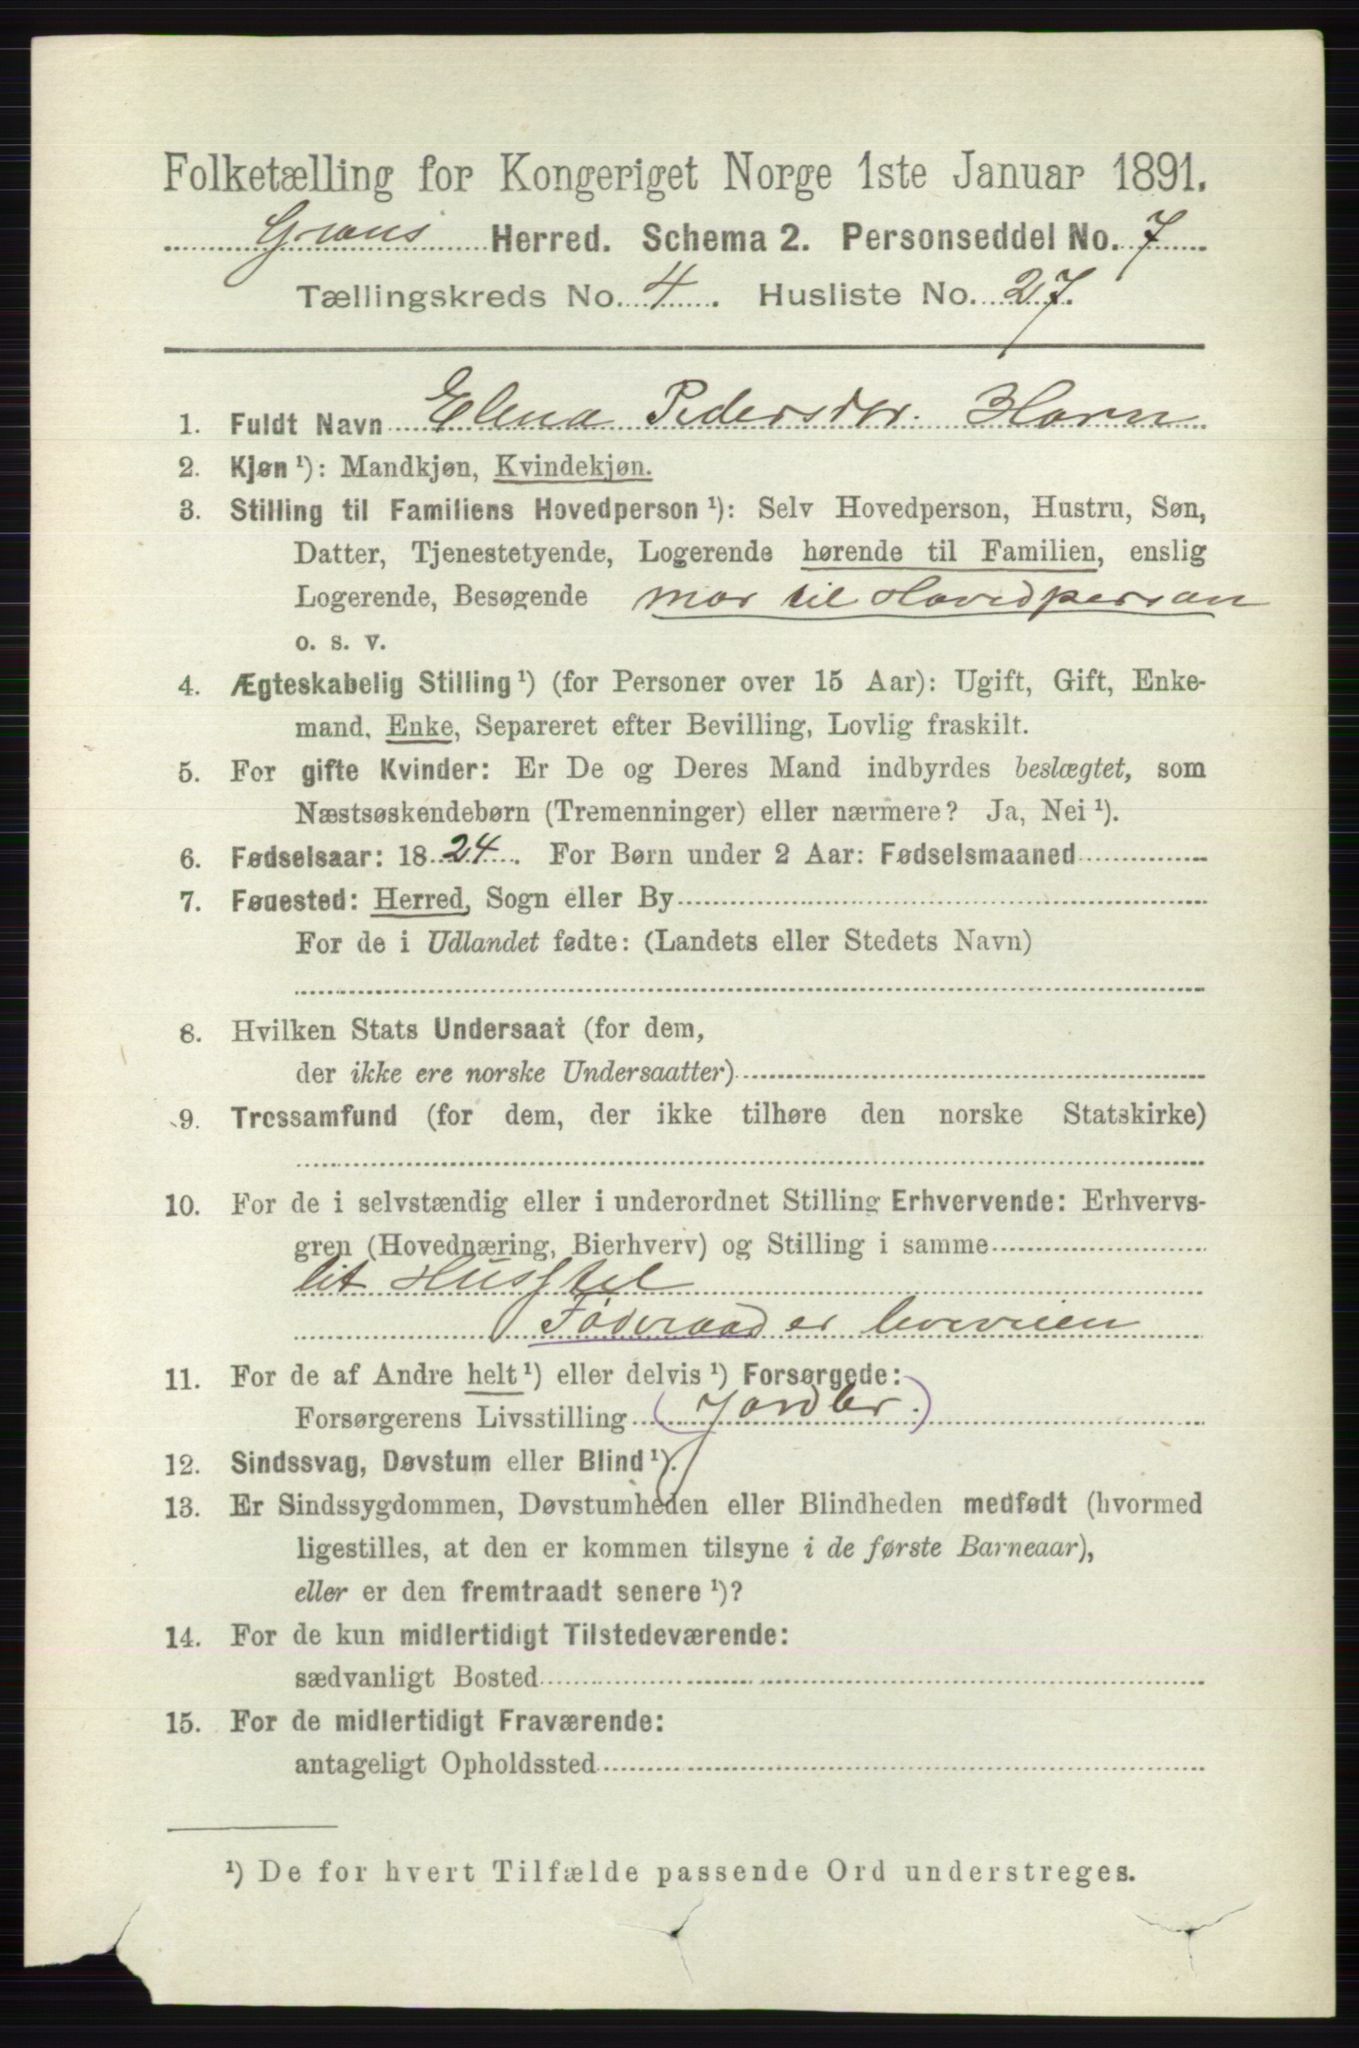 Folketælling for Kongeriget Norge 1ste Januar 1891.
Grans Herred. Schema 2. Personseddel No. 7
Tællingskreds No. 4. Husliste No. 27.
1. Fuldt Navn Elena Pedersdtr. Horn
2. Kjøn ¹): Mandkjøn, Kvindekjøn.
3. Stilling til Familiens Hovedperson ¹): Selv Hovedperson, Hustru, Søn,
Datter, Tjenestetyende, Logerende hørende til Familien, enslig
Logerende, Besøgende mor til Hovedperson
o. s. v.
4. Ægteskabelig Stilling ¹) (for Personer over 15 Aar): Ugift, Gift, Enke-
mand, Enke, Separeret efter Bevilling, Lovlig fraskilt.
5. For gifte Kvinder: Er De og Deres Mand indbyrdes beslægtet, som
Næstsøskendebørn (Tremenninger) eller nærmere? Ja, Nei ¹).
6. Fødselsaar: 1824. For Børn under 2 Aar: Fødselsmaaned
7. Føuested: Herred, Sogn eller By
For de i Udlandet fødte: (Landets eller Stedets Navn)
8. Hvilken Stats Undersaat (for dem,
der ikke ere norske Undersaatter)
9. Trossamfund (for dem, der ikke tilhøre den norske Statskirke)
10. For de i selvstændig eller i underordnet Stilling Erhvervende: Erhvervs-
gren (Hovednæring, Bierhverv) og Stilling i samme
lit Husstel
Føderaad er
11. For de af Andre helt ¹) eller delvis ¹) Forsørgede:
Forsørgerens Livsstilling (Jordbr.)
12. Sindssvag, Døvstum eller Blind ¹).
13. Er Sindssygdommen, Døvstumheden eller Blindheden medfødt (hvormed
ligestilles, at den er kommen tilsyne i de første Barneaar),
eller er den fremtraadt senere ¹)?
14. For de kun midlertidigt Tilstedeværende:
sædvanligt Bosted
15. For de midlertidigt Fraværende:
antageligt Opholdssted
¹) De for hvert Tilfælde passende Ord understreges.